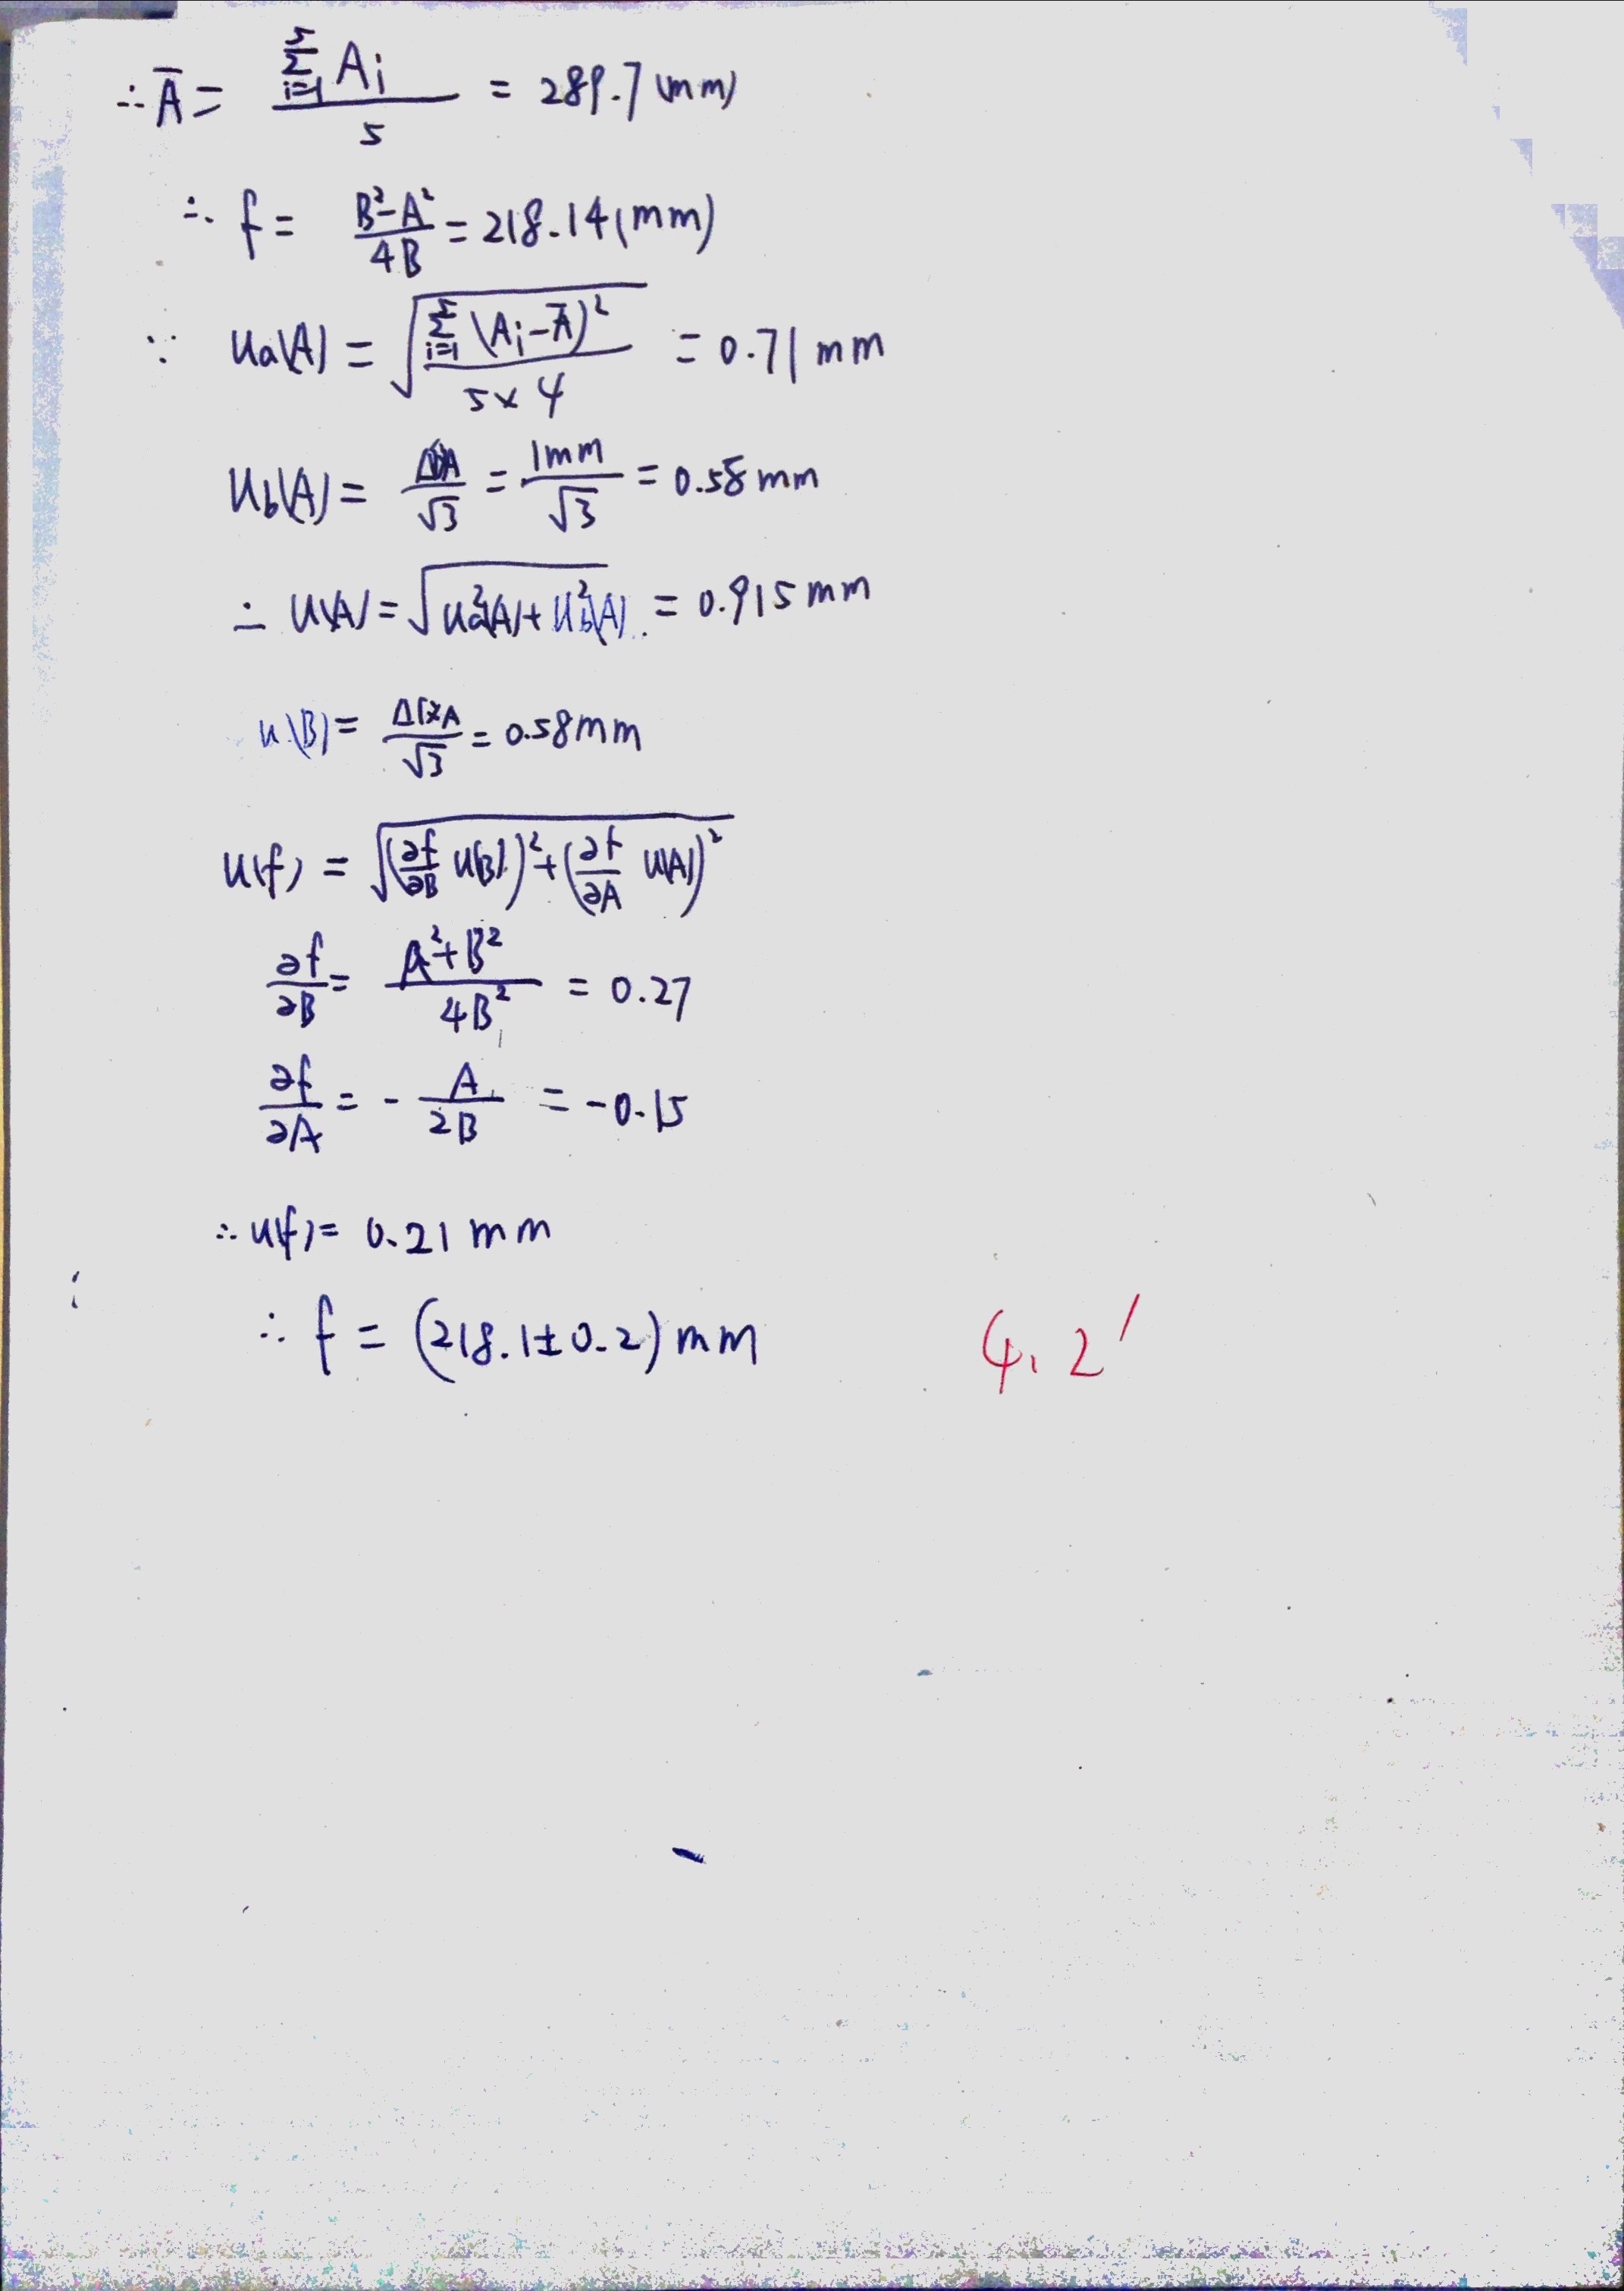 ∴ Ā = \frac{\sum_{i=1}^{5} A_i}{5} = 289.7 (mm)
∴ f = \frac{B²-A²}{4B} = 218.14 (mm)
∵ Ua(A) = \sqrt{\frac{\sum_{i=1}^{5} (A_i-Ā)²}{5×4}} = 0.71 mm
Ub(A) = \frac{ΔA}{√3} = \frac{1mm}{√3} = 0.58 mm
∴ U(A) = \sqrt{Ua²(A) + Ub²(A)} = 0.915 mm
u(B) = \frac{Δ仪A}{√3} = 0.58mm
U(f) = \sqrt{(\frac{∂f}{∂B} U(B))² + (\frac{∂f}{∂A} U(A))²}
\frac{∂f}{∂B} = \frac{A²+B²}{4B²} = 0.27
\frac{∂f}{∂A} = - \frac{A}{2B} = -0.15
∴ u(f) = 0.21 mm
∴ f = (218.1±0.2) mm
4.2'